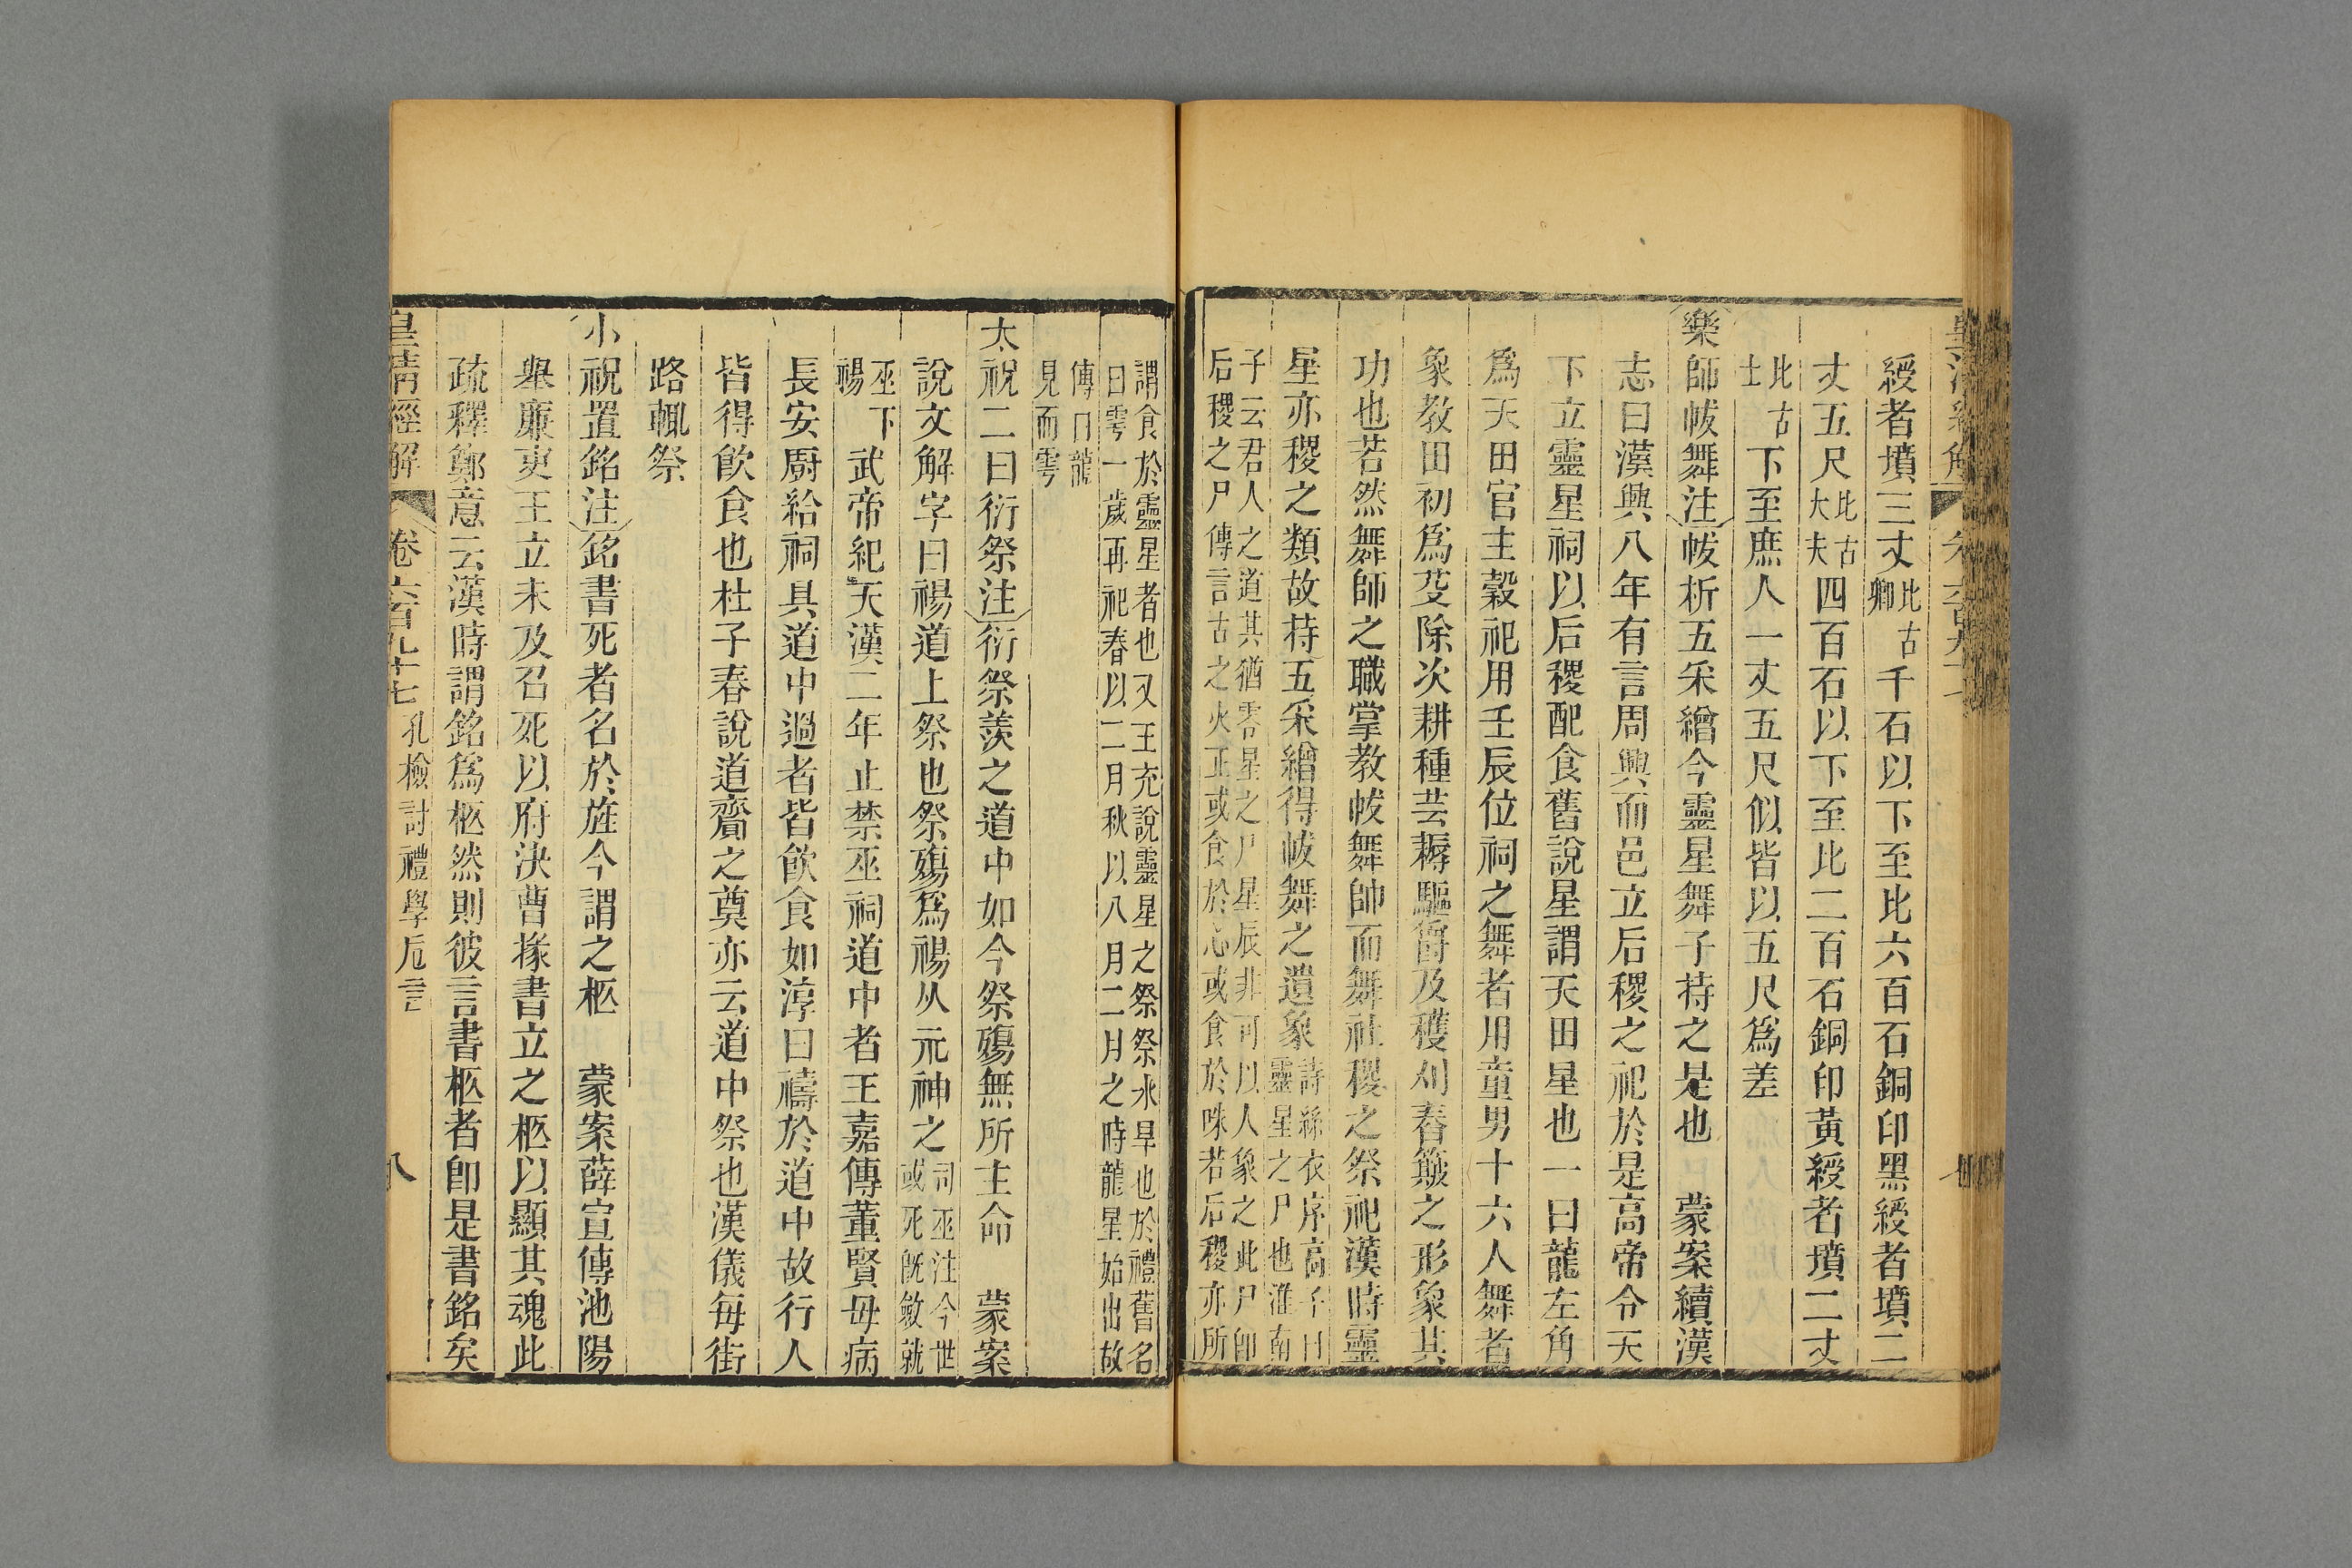 綬者墳三丈比古卿千石以下至比六百石銅印黑綬者墳二
丈五尺比古大夫四百石以下至比二百石銅印黃綬者墳二丈
比古士下至庶人一丈五尺似皆以五尺爲差
樂師帗舞注帗析五采繒今靈星舞子持之是也　蒙案續漢
志曰漢興八年有言周興而邑立后稷之祀於是高帝令天
下立靈星祠以后稷配食舊說星謂天田星也一曰龍左角
爲天田官主穀祀用壬辰位祠之舞者用童男十六人舞者
象教田初爲芟除次耕種芸耨驅爵及穫刈舂簸之形象其
功也若然舞師之職掌教帗舞帥而舞社稷之祭祀漢時靈
星亦稷之類故持五采繒得帗舞之遺象詩絲衣序高子曰
靈星之尸也淮南
子云君人之道其猶零星之尸星辰非可以人象之此尸卽
后稷之尸傳言古之火正或食於心或食於咮若后稷亦所
謂食於靈星者也又王充說靈星之祭祭水旱也於禮舊名
曰雩一歲再祀春以二月秋以八月二月之時龍星始出故
傳曰龍
見而雩
太祝二曰衍祭注衍祭羨之道中如今祭殤無所主命　蒙案
說文解字曰禓道上祭也祭殤爲禓从元神之司巫注今世
或死旣斂就
巫下禓武帝紀天漢二年止禁巫祠道中者王嘉傳董賢母病
長安廚給祠具道中過者皆飮食如淳曰禱於道中故行人
皆得飮食也杜子春說道齎之奠亦云道中祭也漢儀每街
路輒祭
小祝置銘注銘書死者名於旌今謂之柩　蒙案薛宣傳池陽
舉廉吏王立未及召死以府決曹掾書立之柩以顯其魂此
疏釋鄭意云漢時謂銘爲柩然則彼言書柩者卽是書銘矣
皇清經解　卷六百九十七　孔檢討禮學卮言　八